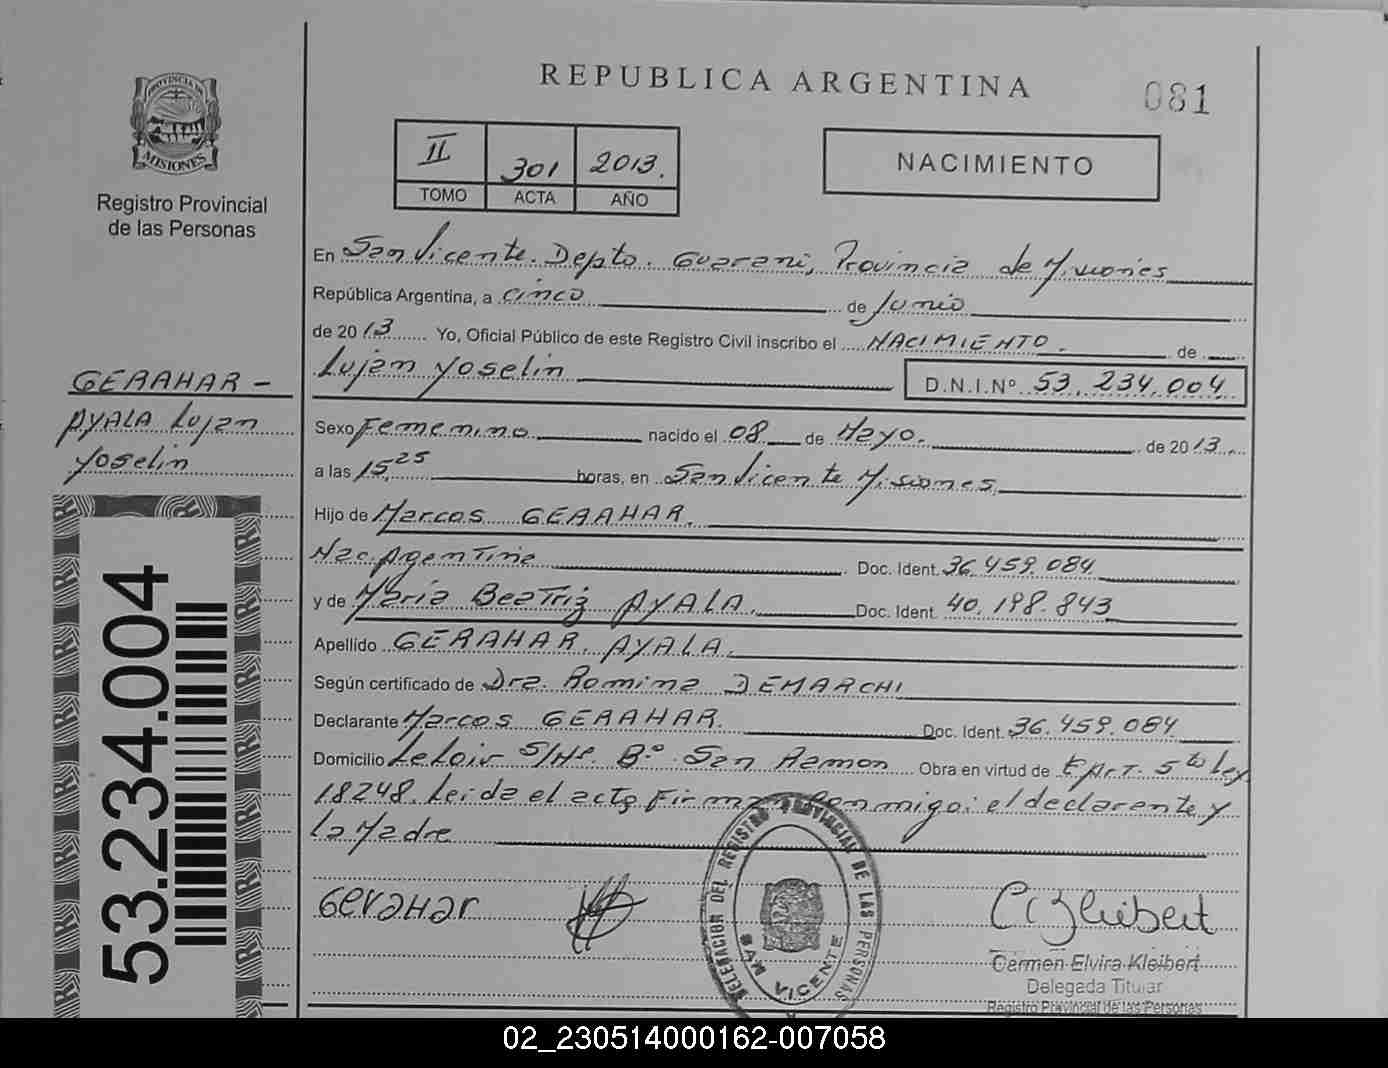 REPUBLICA ARGENTINA
081
PROVINCIA DE
MISIONES
Registro Provincial
de las Personas
II 301 2013.
TOMO ACTA AÑO
NACIMIENTO
En San Vicente. Depto. Guarani, Provincia de Misiones
República Argentina, a cinco de Junio
de 2013 Yo, Oficial Público de este Registro Civil inscribo el NACIMIENTO. de
Lujan Yoselin D.N.I.Nº 53.234.004
GERAHAR -
AYALA Lujan
Yoselin
Sexo Femenino nacido el 08 de Mayo. de 2013.
a las 15,25 horas, en San Vicente Misiones
Hijo de Marcos GERAHAR.
Nac. Argentina Doc. Ident. 36.459.084
y de Maria Beatriz AYALA. Doc. Ident. 40.198.843
Apellido GERAHAR. AYALA.
Según certificado de Dra. Romina DEMARCHI
Declarante Marcos GERAHAR. Doc. Ident. 36.459.084
Domicilio Leloir S/Nº. Bº San Ramon Obra en virtud de Art. 5to Ley
18248. Leida el acta firman conmigo: el declarante y
la Madre
53.234.004
Gerahar
DELEGACION DEL REGISTRO PROVINCIAL DE LAS PERSONAS
SAN VICENTE
Kleibert
Carmen Elvira Kleibert
Delegada Titular
Registro Provincial de las Personas
02_230514000162-007058